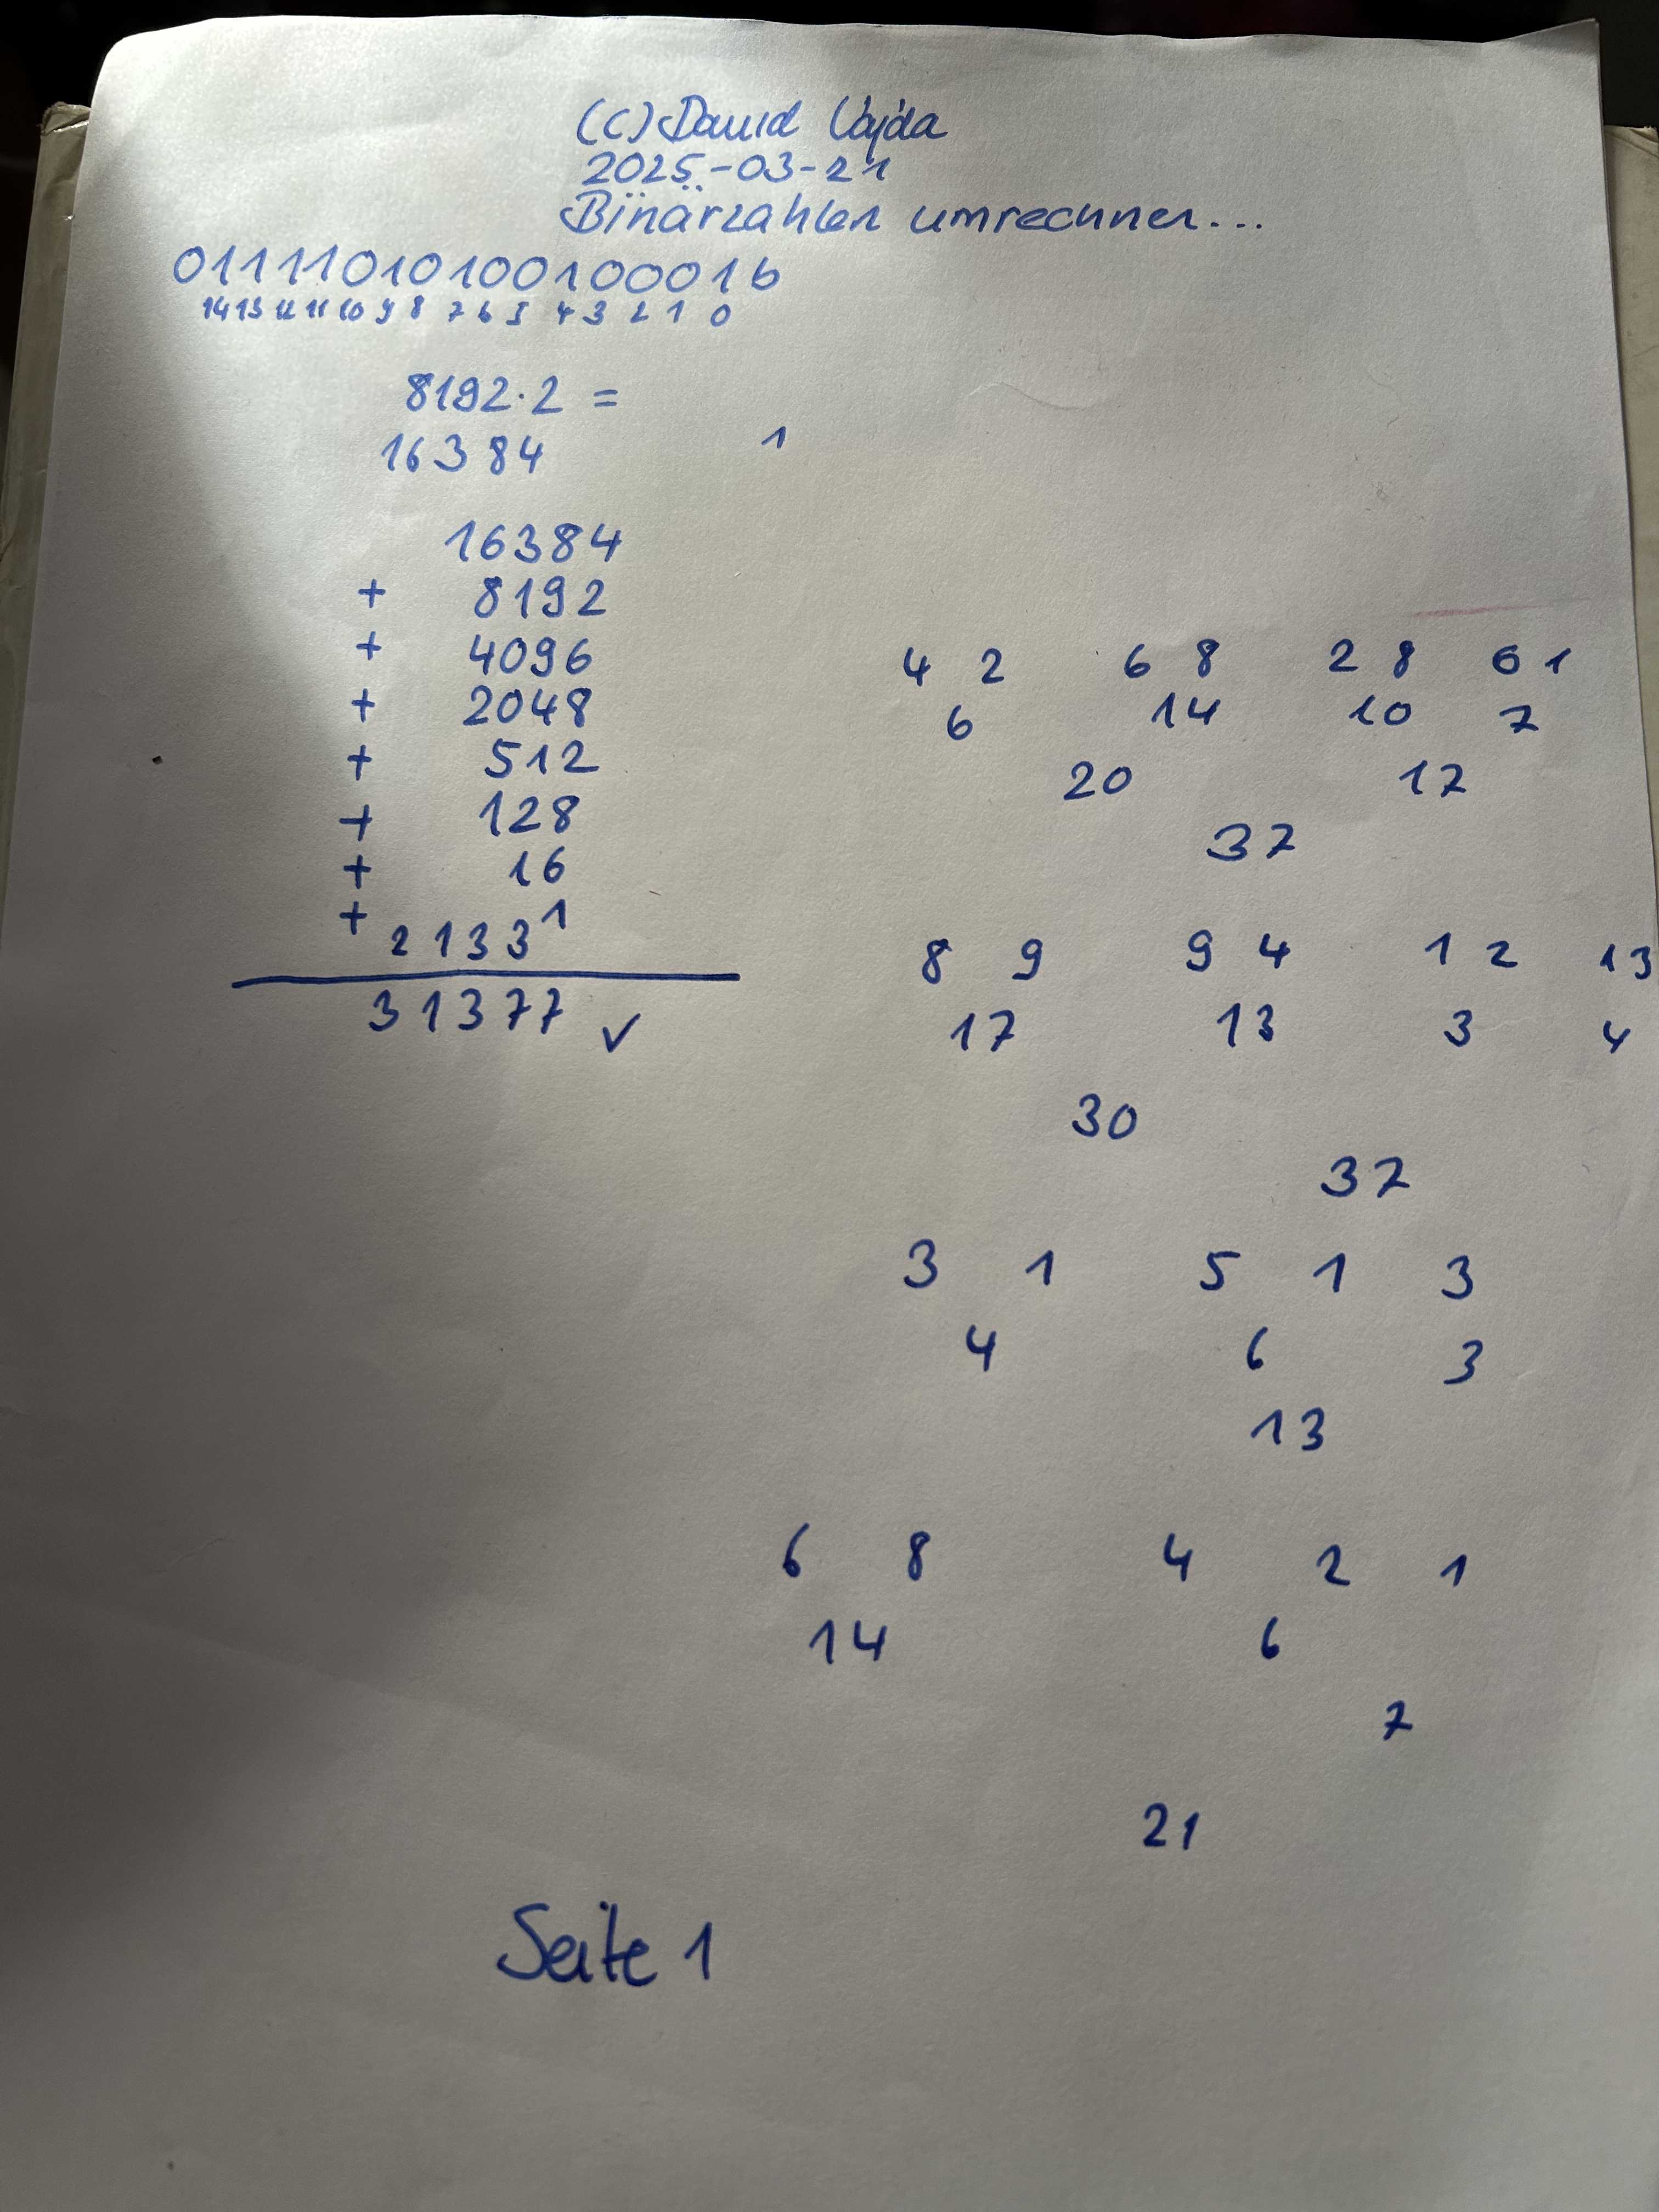 (C) David Vajda
2025-03-21
Binärzahlen umrechnen...
0111101010010001b
14 13 12 11 10 9 8 7 6 5 4 3 2 1 0
8192·2 =
16384 1
16384
+ 8192
+ 4096
+ 2048
+ 512
+ 128
+ 16
+ 1
2 1 3 3
31377 ✓
4 2 6 8 2 8 6 1
6 14 10 7
20 17
37
8 9 9 4 1 2 1 3
17 13 3 4
30
37
3 1 5 1 3
4 6 3
13
6 8 4 2 1
14 6
7
21
Seite 1